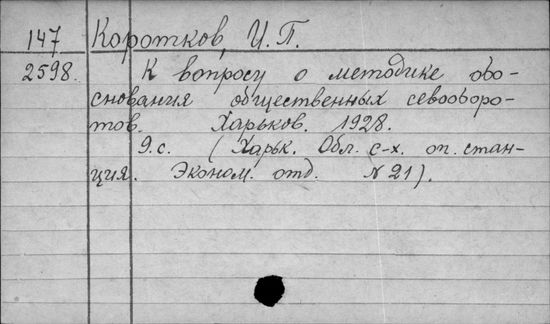 147 Коротков, И. П.
2598. К вопросу о методике обо-
снования общественных севооборо-
тов. Харьков. 1928.
9 с. (Харьк. Обл. с-х. оп. стан-
ция. Эконом. отд. № 21).